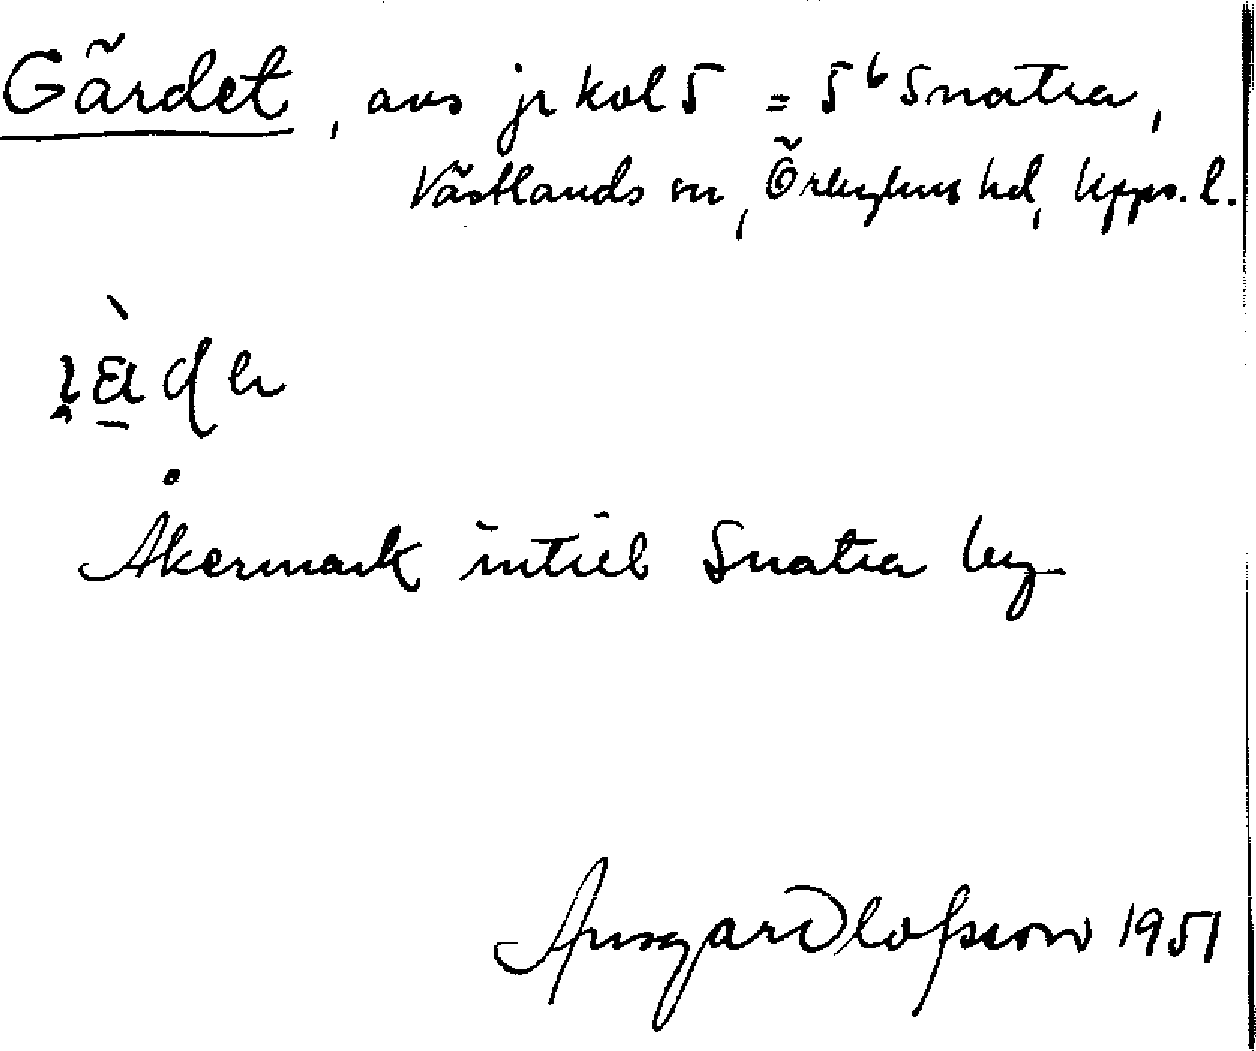 Gärdet, avs jr kol 5 = 5b Snatra,
Västlands sn, Örbyhus hd, Upps. l.
Åkermark intill Snatra by
Ansgar Olofsson 1951